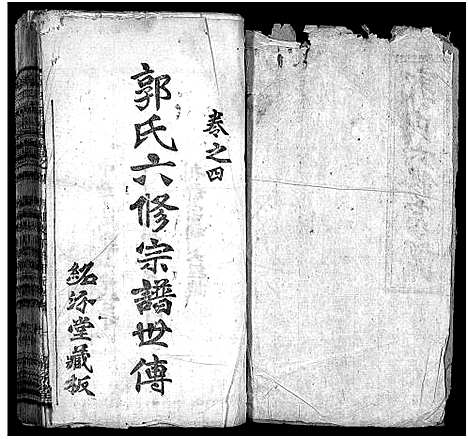 卷之四
郭氏六修宗譜世傳
紹汾堂藏板